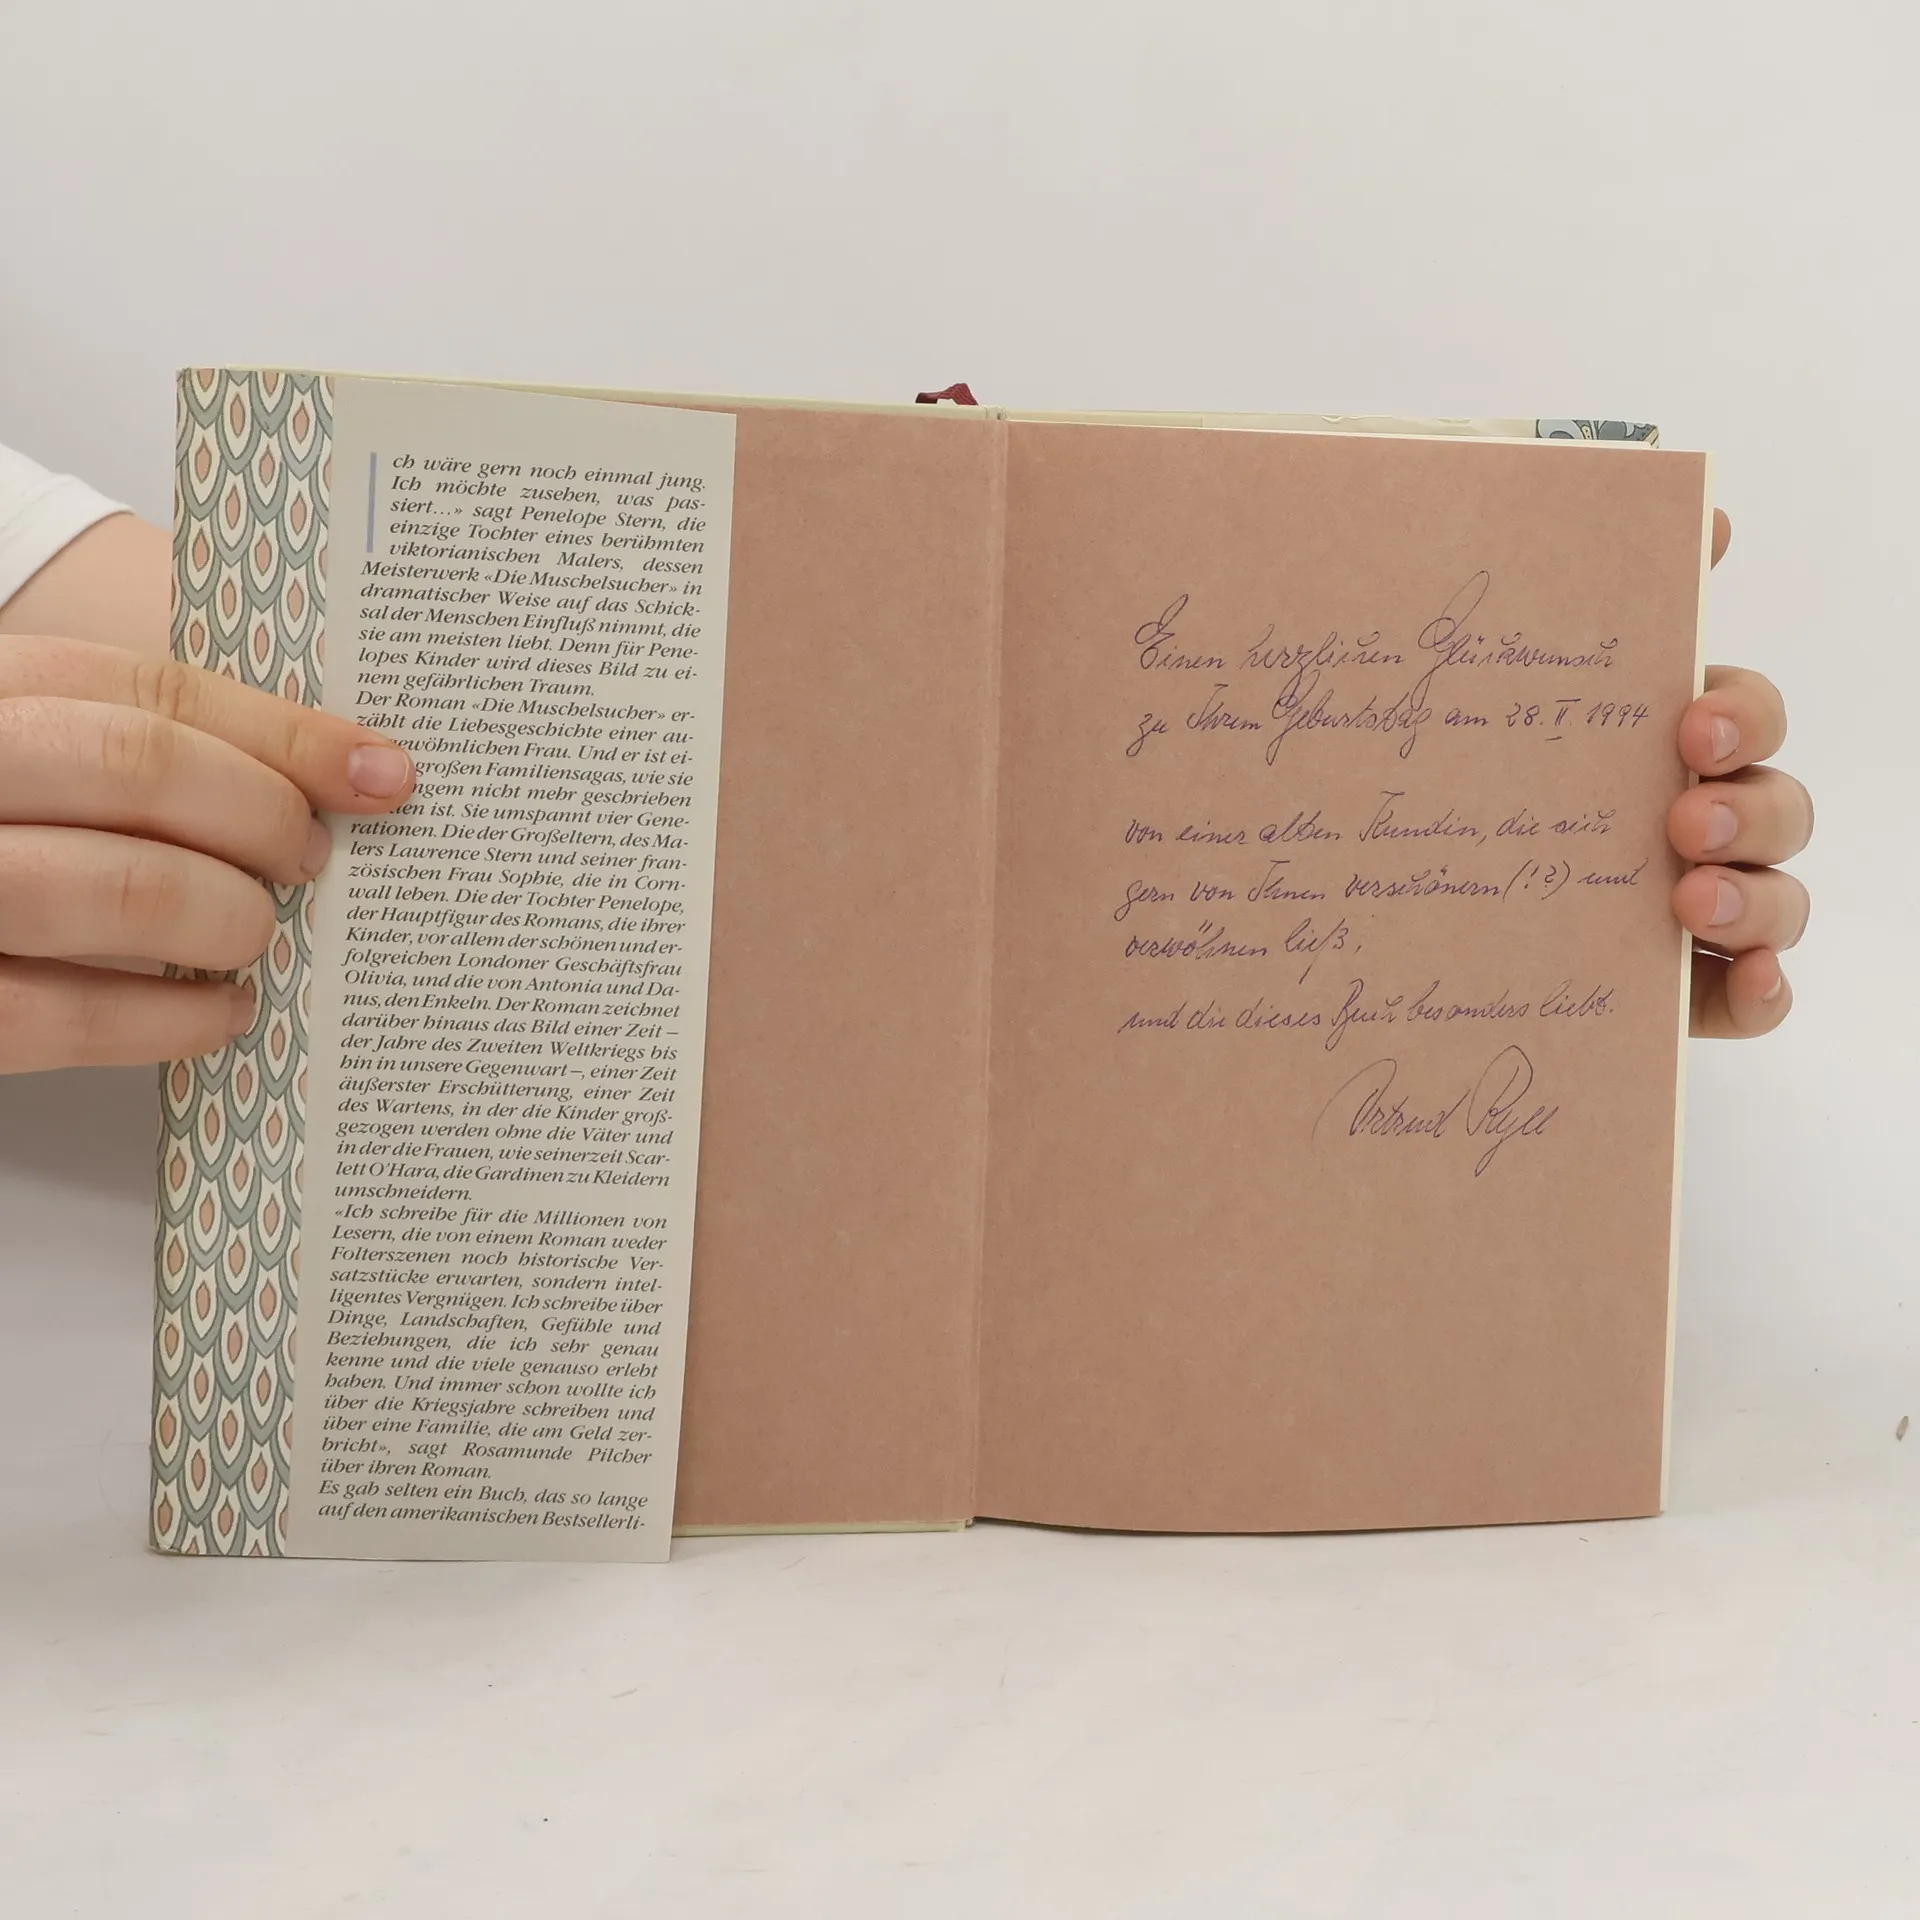 Ich wäre gern noch einmal jung.
Ich möchte zusehen, was pas-
siert...» sagt Penelope Stern, die
einzige Tochter eines berühmten
viktorianischen Malers, dessen
Meisterwerk «Die Muschelsucher» in
dramatischer Weise auf das Schick-
sal der Menschen Einfluß nimmt, die
sie am meisten liebt. Denn für Pene-
lopes Kinder wird dieses Bild zu ei-
nem gefährlichen Traum.
Der Roman «Die Muschelsucher» er-
zählt die Liebesgeschichte einer au-
gewöhnlichen Frau. Und er ist ei-
großen Familiensagas, wie sie
ngem nicht mehr geschrieben
den ist. Sie umspannt vier Gene-
rationen. Die der Großeltern, des Ma-
lers Lawrence Stern und seiner fran-
zösischen Frau Sophie, die in Corn-
wall leben. Die der Tochter Penelope,
der Hauptfigur des Romans, die ihrer
Kinder, vor allem der schönen und er-
folgreichen Londoner Geschäftsfrau
Olivia, und die von Antonia und Da-
nus, den Enkeln. Der Roman zeichnet
darüber hinaus das Bild einer Zeit –
der Jahre des Zweiten Weltkriegs bis
hin in unsere Gegenwart –, einer Zeit
äußerster Erschütterung, einer Zeit
des Wartens, in der die Kinder groß-
gezogen werden ohne die Väter und
in der die Frauen, wie seinerzeit Scar-
lett O'Hara, die Gardinen zu Kleidern
umschneidern.
«Ich schreibe für die Millionen von
Lesern, die von einem Roman weder
Folterszenen noch historische Ver-
satzstücke erwarten, sondern intel-
ligentes Vergnügen. Ich schreibe über
Dinge, Landschaften, Gefühle und
Beziehungen, die ich sehr genau
kenne und die viele genauso erlebt
haben. Und immer schon wollte ich
über die Kriegsjahre schreiben und
über eine Familie, die am Geld zer-
bricht», sagt Rosamunde Pilcher
über ihren Roman.
Es gab selten ein Buch, das so lange
auf den amerikanischen Bestsellerli-
Einen herzlichen Glückwunsch
zu Ihrem Geburtstag am 28. II. 1994
von einer alten Kundin, die sich
gern von Ihnen verschönern (!?) und
verwöhnen ließ,
und die dieses Buch besonders liebt.
Ortrud Ryll